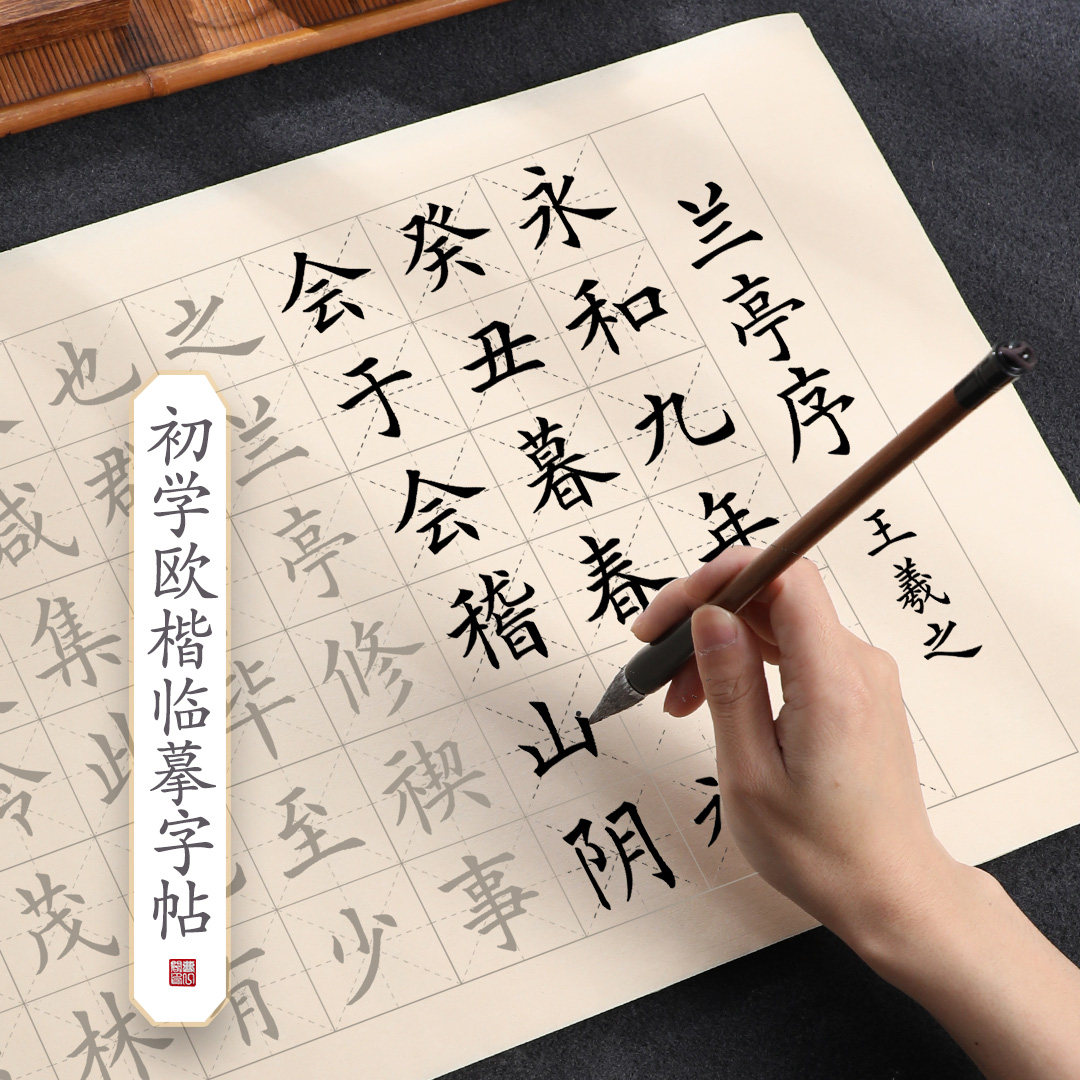 兰亭序 王羲之
永和九年
癸丑暮春
会于会稽山阴
之兰亭修禊事
也群毕至少
咸集此有
茂林
初学欧楷临摹字帖